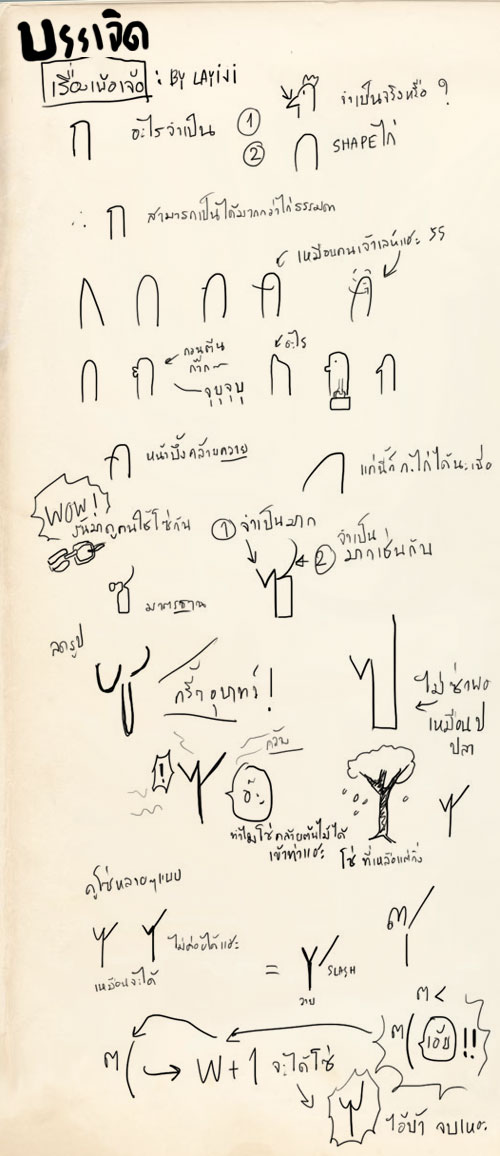 บรรเจิด
เรื่องเพ้อเจ้อ : BY LAYIJI
ก อะไรจำเป็น ①
จำเป็นจริงหรือ ?
② SHAPE ไก่
∴ ก สามารถเป็นได้มากกว่าไก่ธรรมดา
เหมือนคนเจ้าเล่ห์แฮะ 55
กวนตีน
ก๊าก~
จุบุจุบุ
อะไร
หน้าบึ้งคล้ายควาย
แก่นี้ก็ ก.ไก่ได้นะเธอ
WOW!
วันมาดูคนใช้โซ่กัน
① จำเป็นมาก
② จำเป็น
มากเช่นกัน
มาตรฐาน
ลดรูป
กรี๊ดอุบาทว์ !
ไม่ซ่าพอ
เหมือน ป
ปลา
!
ควับ
อ๊ะ
ทำไมโซ่คล้ายต้นไม้ได้
เข้าท่าแฮะ
โซ่ ที่เหลือแต่กิ่ง
ดูโซ่หลายๆแบบ
ไม่ค่อยได้แฮะ
เหมือนจะได้
=
SLASH
วาย
๓ /
๓ <
๓ ( เอ้ย !!
๓ ( → W + 1 จะได้โซ่
ไอ้บ้า จบเหอะ